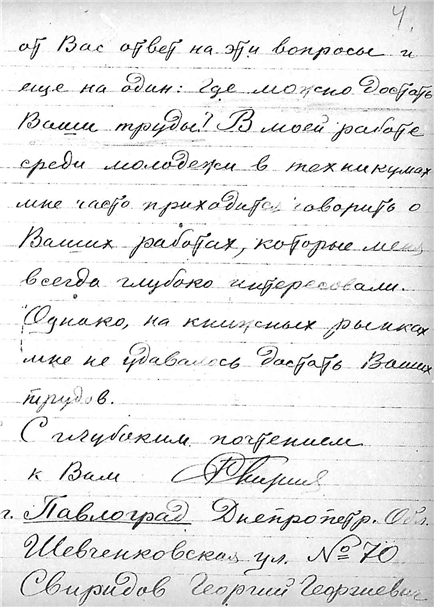 4.
от Вас ответ на эти вопросы и
еще на один: где можно достать
Ваши труды? В моей работе
среди молодежи в техникумах
мне часто приходится говорить о
Ваших работах, которые меня
всегда глубоко интересовали.
Однако, на книжных рынках
мне не удавалось достать Ваших
трудов.
С глубоким почтением
к Вам
г. Павлоград Днепропетр. Обл.
Шевченковская ул. № 70
Свиридов Георгий Георгиевич